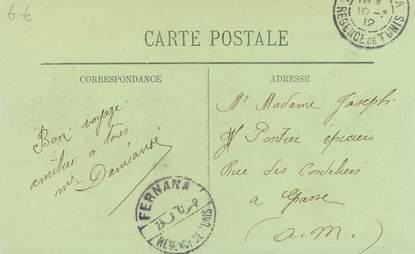 6 €
CARTE POSTALE
CORRESPONDANCE
ADRESSE
Bon voyage
amitiés à tous
Mr Madame Joseph
Pontier epiciers
Rue des Cordeliers
a Grasse
(A. M.)
10 -3
12
REGENCE DE TUNIS
FERNANA
REGENCE DE TUNIS